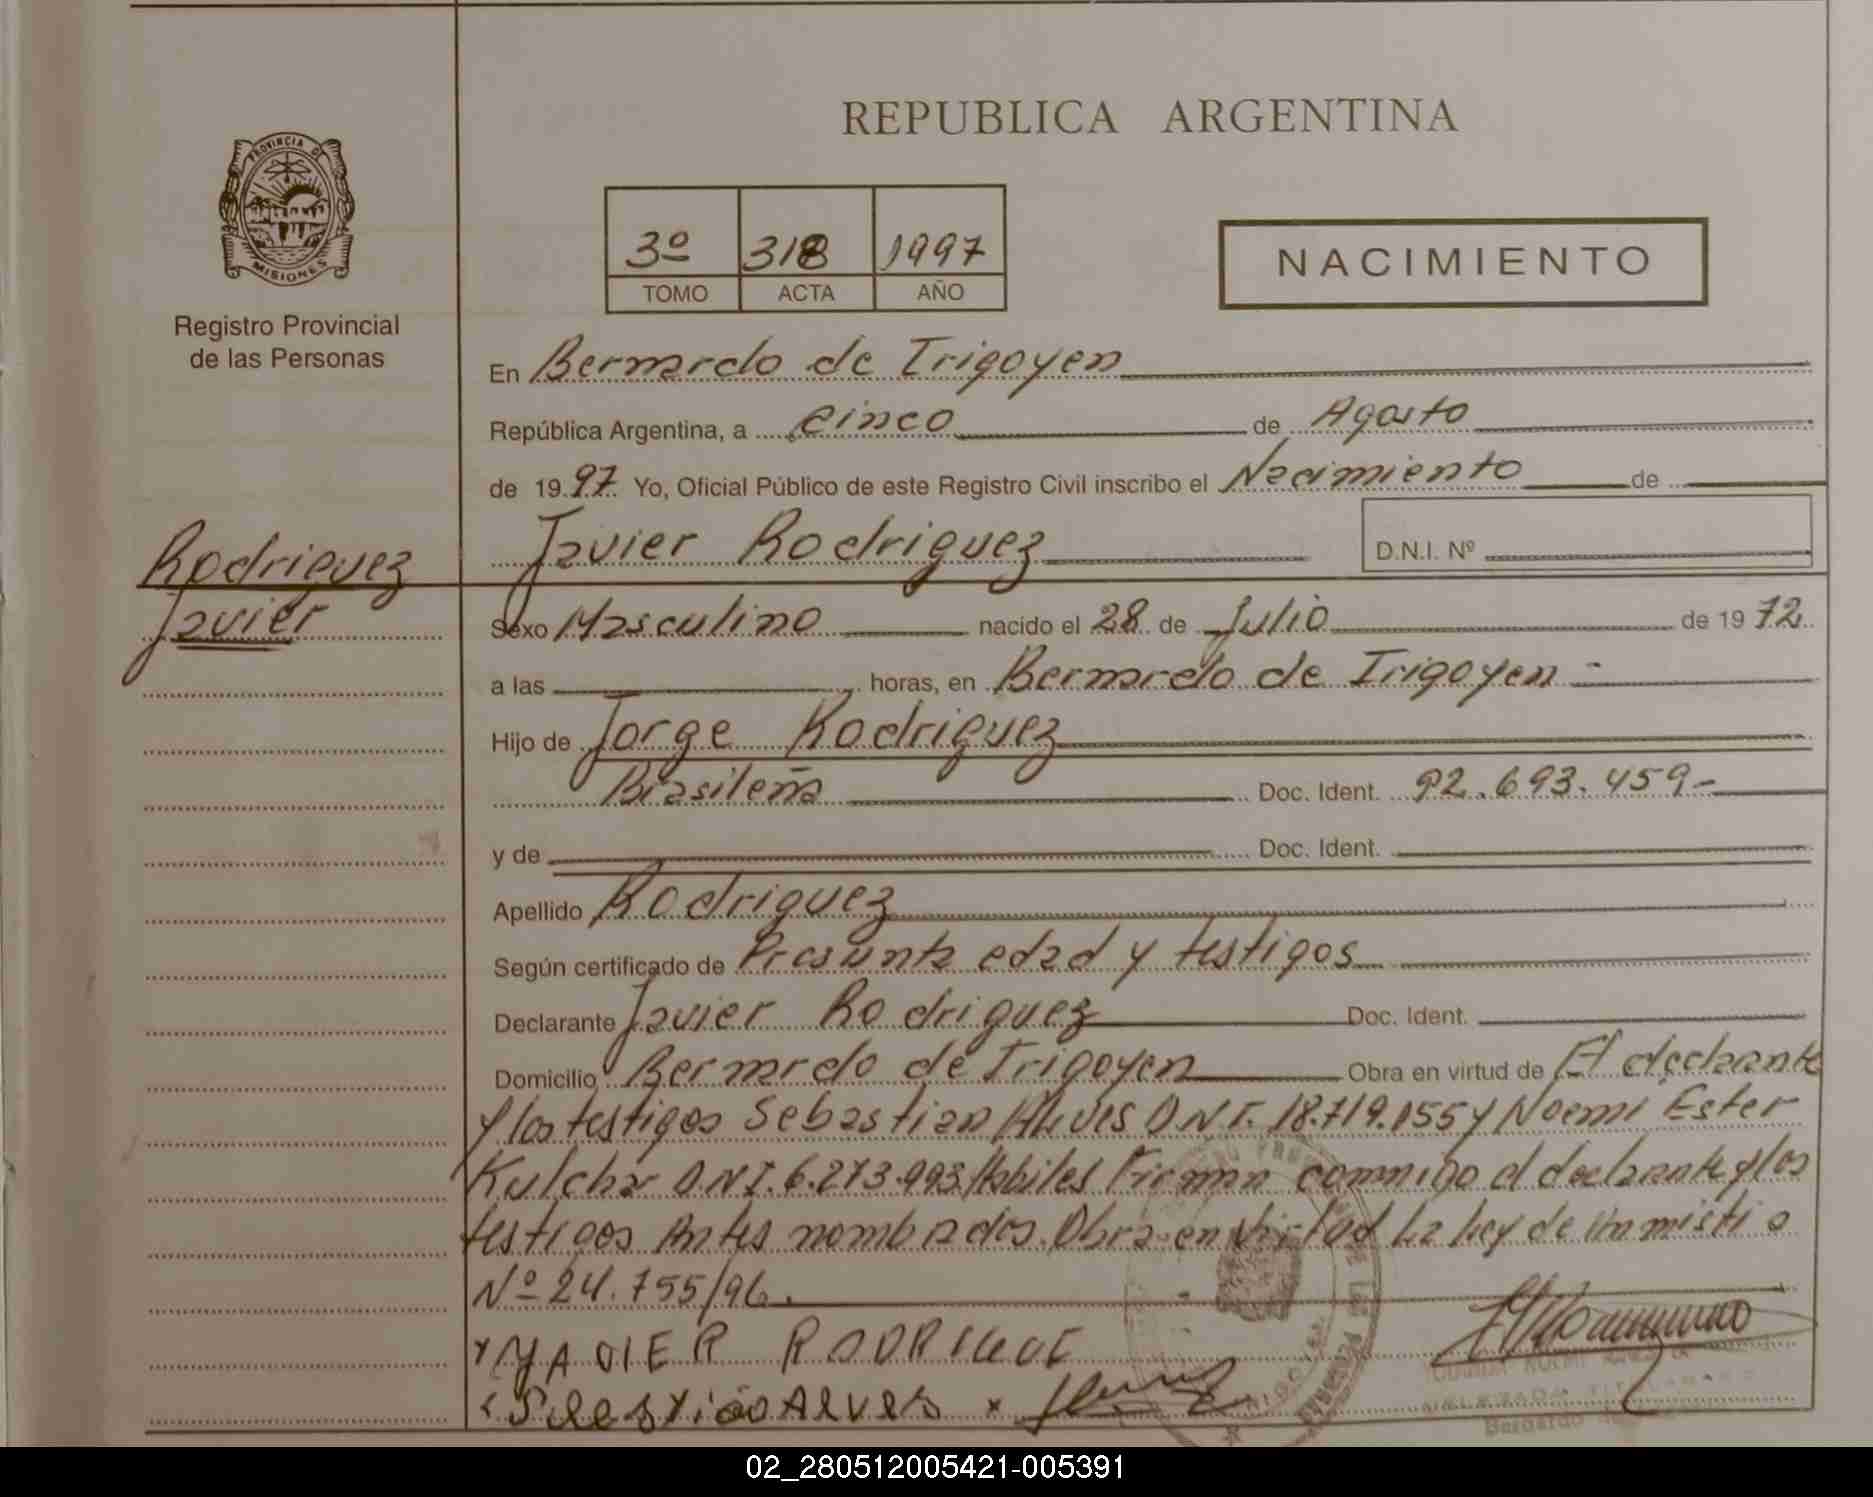 REPUBLICA ARGENTINA
PROVINCIA DE
MISIONES
Registro Provincial
de las Personas
3º 318 1997
TOMO ACTA AÑO
NACIMIENTO
En Bernardo de Irigoyen
República Argentina, a cinco de Agosto
de 1997 Yo, Oficial Público de este Registro Civil inscribo el Nacimiento de
Javier Rodriguez D.N.I. Nº
Rodriguez
Javier
Sexo Masculino nacido el 28 de Julio de 1972
a las horas, en Bernardo de Irigoyen -
Hijo de Jorge Rodriguez
Brasileña Doc. Ident. 92.693.459-
y de Doc. Ident.
Apellido Rodriguez
Según certificado de Presunta edad y testigos
Declarante Javier Rodriguez Doc. Ident.
Domicilio Bernardo de Irigoyen Obra en virtud de El declarante
y los testigos Sebastian Alves D.N.I. 18.719.155 y Noemi Ester
Kulcha D.N.I. 6.273.993 Habiles Firman conmigo el declarante y los
testigos Antes nombrados. Obra en virtud La Ley de
Nº 24.755/96.
x YAVIER
x ALVES x
Bernardo de
02_280512005421-005391